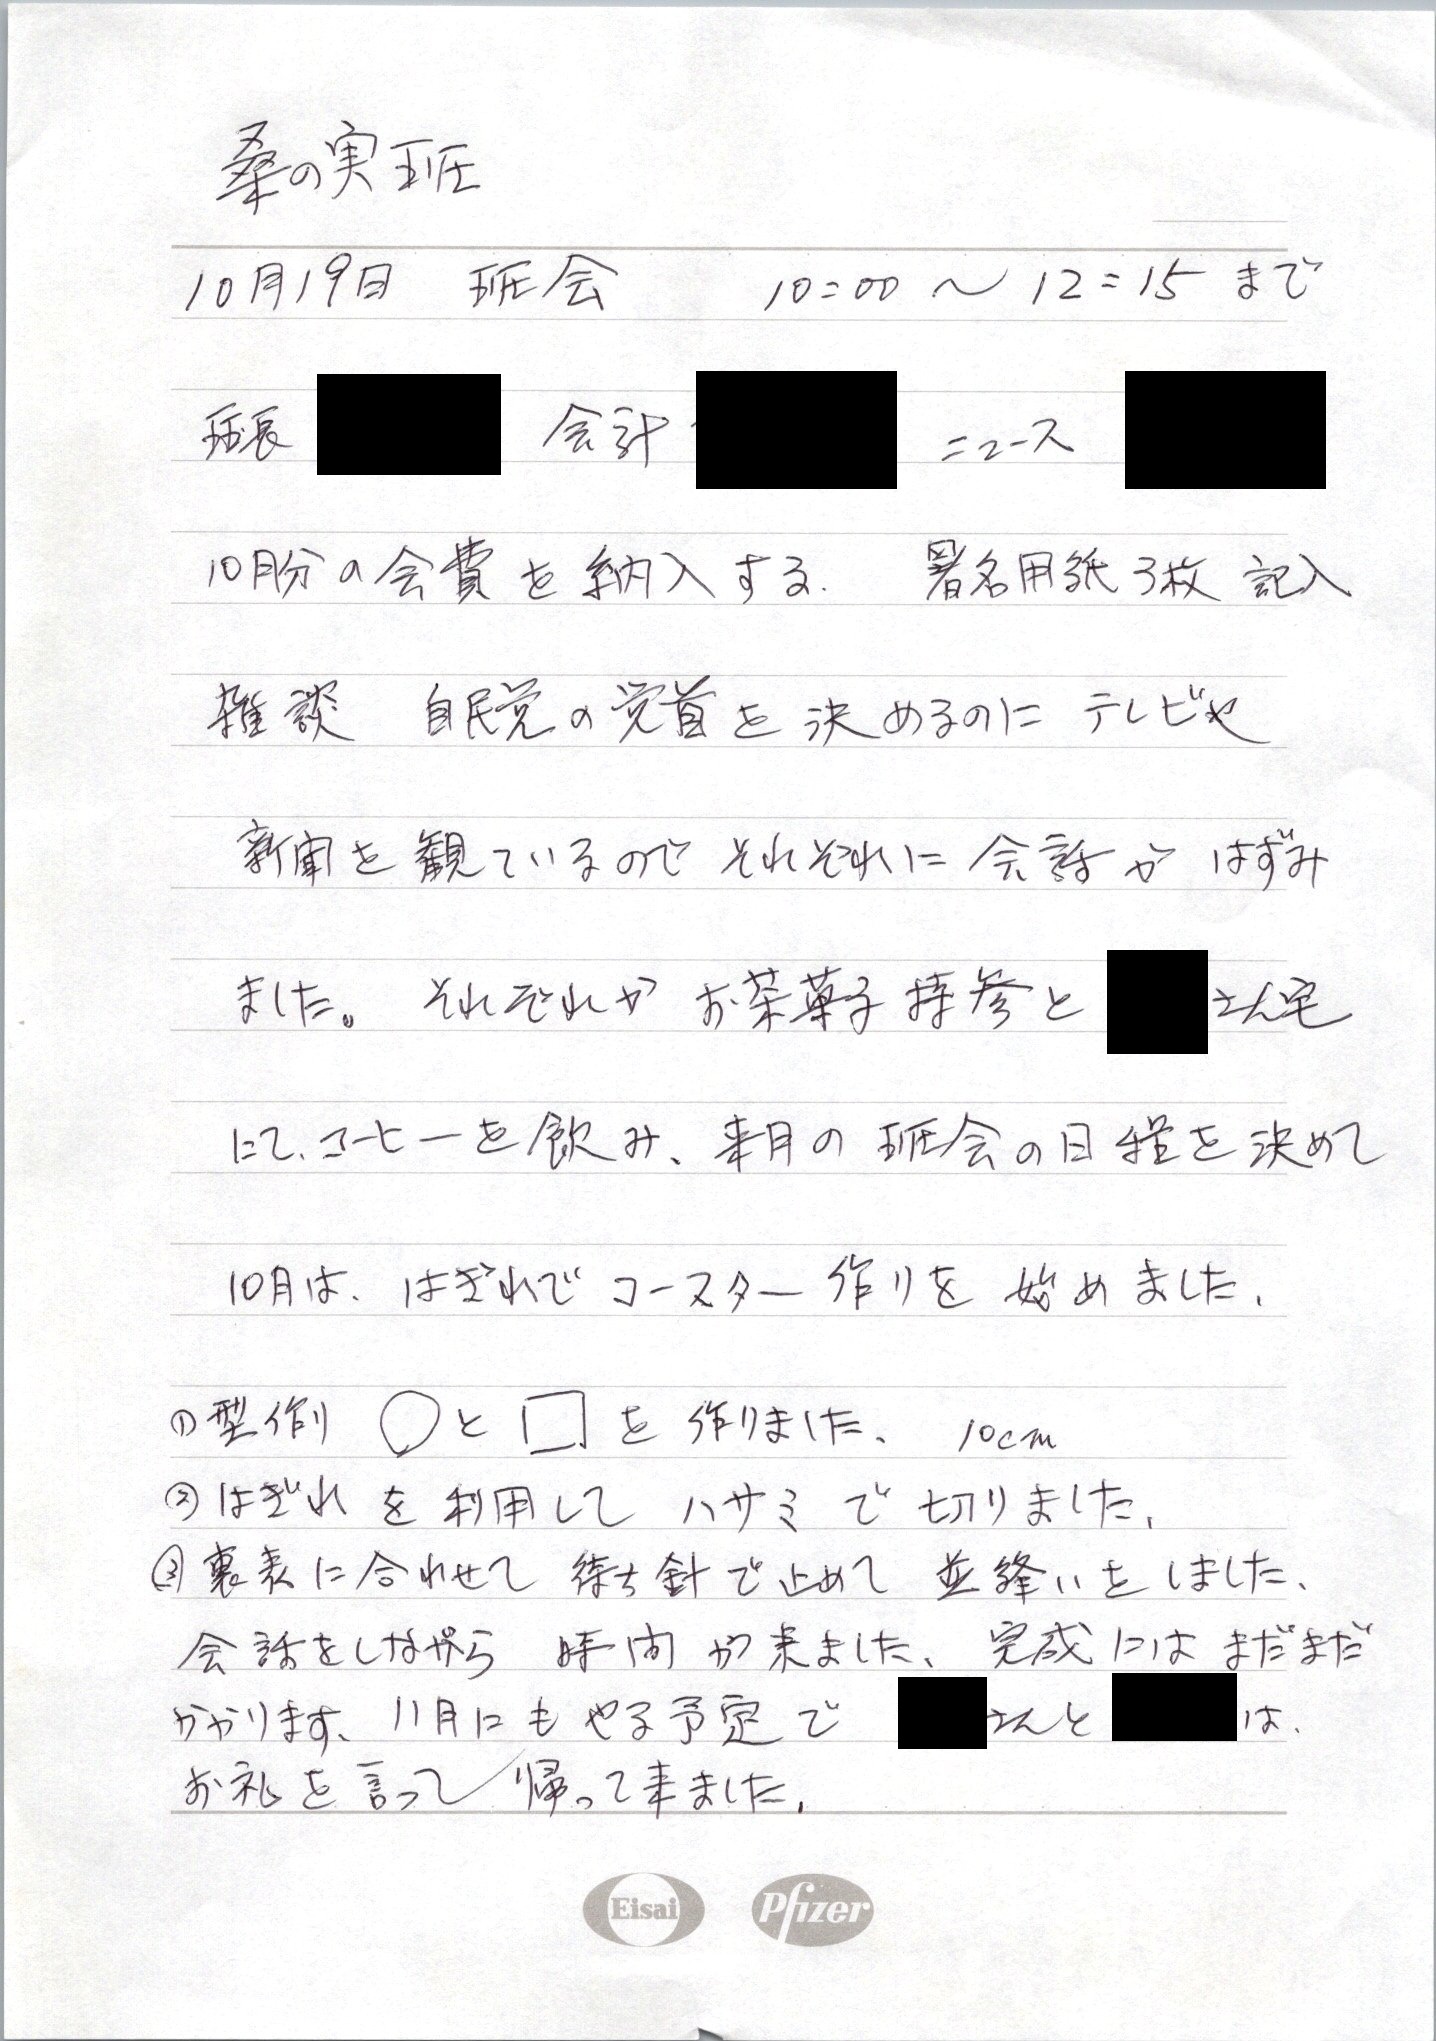 桑の実班
10月19日 班会 10:00 〜 12:15 まで
班長 会計 ニュース
10月分の会費を納入する. 署名用紙3枚 記入
雑談 自民党の党首を決めるのに テレビや
新聞を観ているので それぞれに 会話が はずみ
ました。 それぞれが お茶菓子持参と さん宅
にて、コーヒーを飲み、来月の班会の日程を決めて
10月は、はぎれでコースター作りを始めました、
①型作り ○と□を作りました、 10cm
②はぎれを利用して ハサミで切りました、
③裏表に合わせて 待ち針で止めて 並縫いをしました、
会話をしながら 時間が来ました、 完成にはまだまだ
かかります、11月にもやる予定で さんと は、
お礼を言って帰って来ました、
Eisai Pfizer